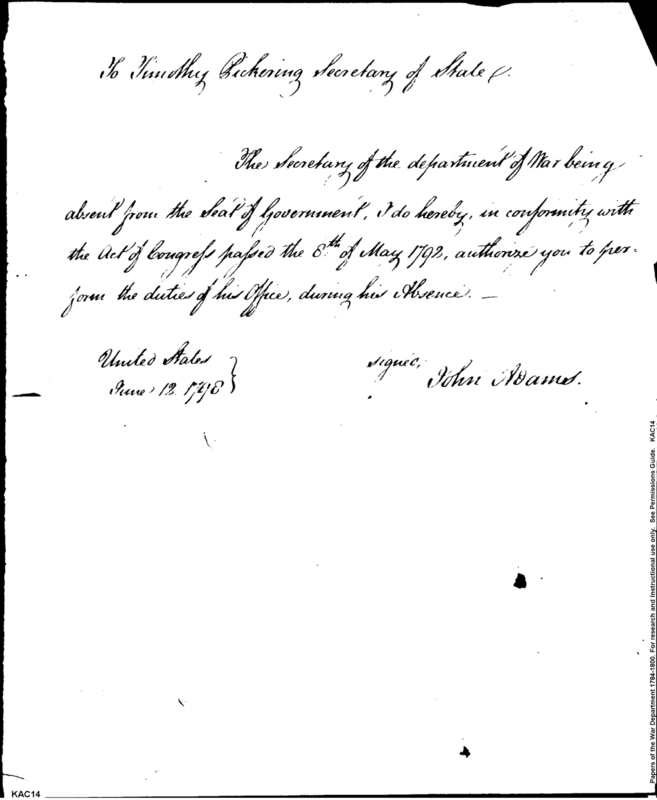 To Timothy Pickering Secretary of State.
The Secretary of the department of War being
absent from the Seat of Government, I do hereby, in conformity with
the Act of Congress passed the 8th of May 1792, authorize you to per-
form the duties of his Office, during his Absence. —
United States
June 12. 1798
signed,
John Adams.
Papers of the War Department 1784-1800. For research and Instructional use only. See Permissions Guide. KAC14
KAC14